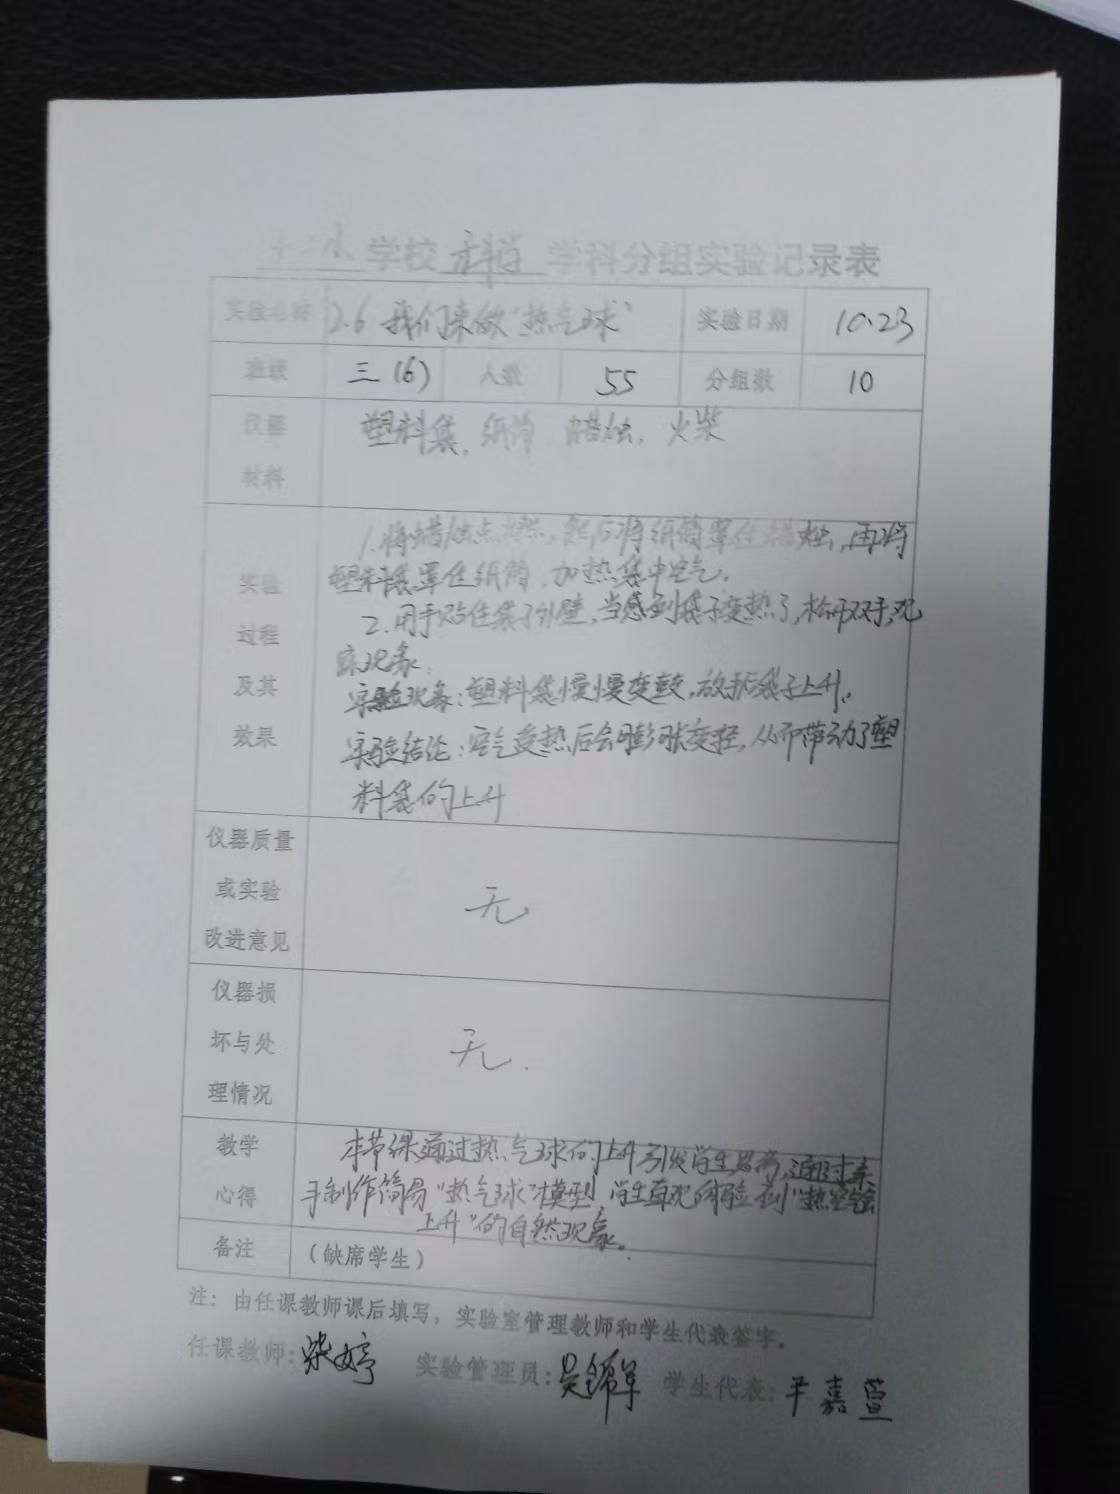 学校 科学 学科分组实验记录表
实验名称 2.6 我们来做“热气球” 实验日期 10.23
班级 三(6) 人数 55 分组数 10
仪器 塑料袋、纸筒 蜡烛、火柴
材料
1.将蜡烛点燃,然后将纸筒罩住蜡烛,再将
实验 塑料袋罩住纸筒,加热袋中空气。
过程 2.用手贴住袋子外壁,当感到袋子变热了,松开双手,观
察现象:
及其 实验现象:塑料袋慢慢变鼓,放手后袋子上升。
效果 实验结论:空气受热后会膨胀变轻,从而带动了塑
料袋的上升
仪器质量
或实验 无
改进意见
仪器损
坏与处 无.
理情况
教学 本节课通过热气球的上升引发学生思考,通过亲
心得 手制作简易“热气球”模型,学生直观体验到“热空气会
上升”的自然现象。
备注 (缺席学生)
注:由任课教师课后填写,实验室管理教师和学生代表签字。
任课教师:柴婷 实验管理员:吴锦军 学生代表: 嘉萱